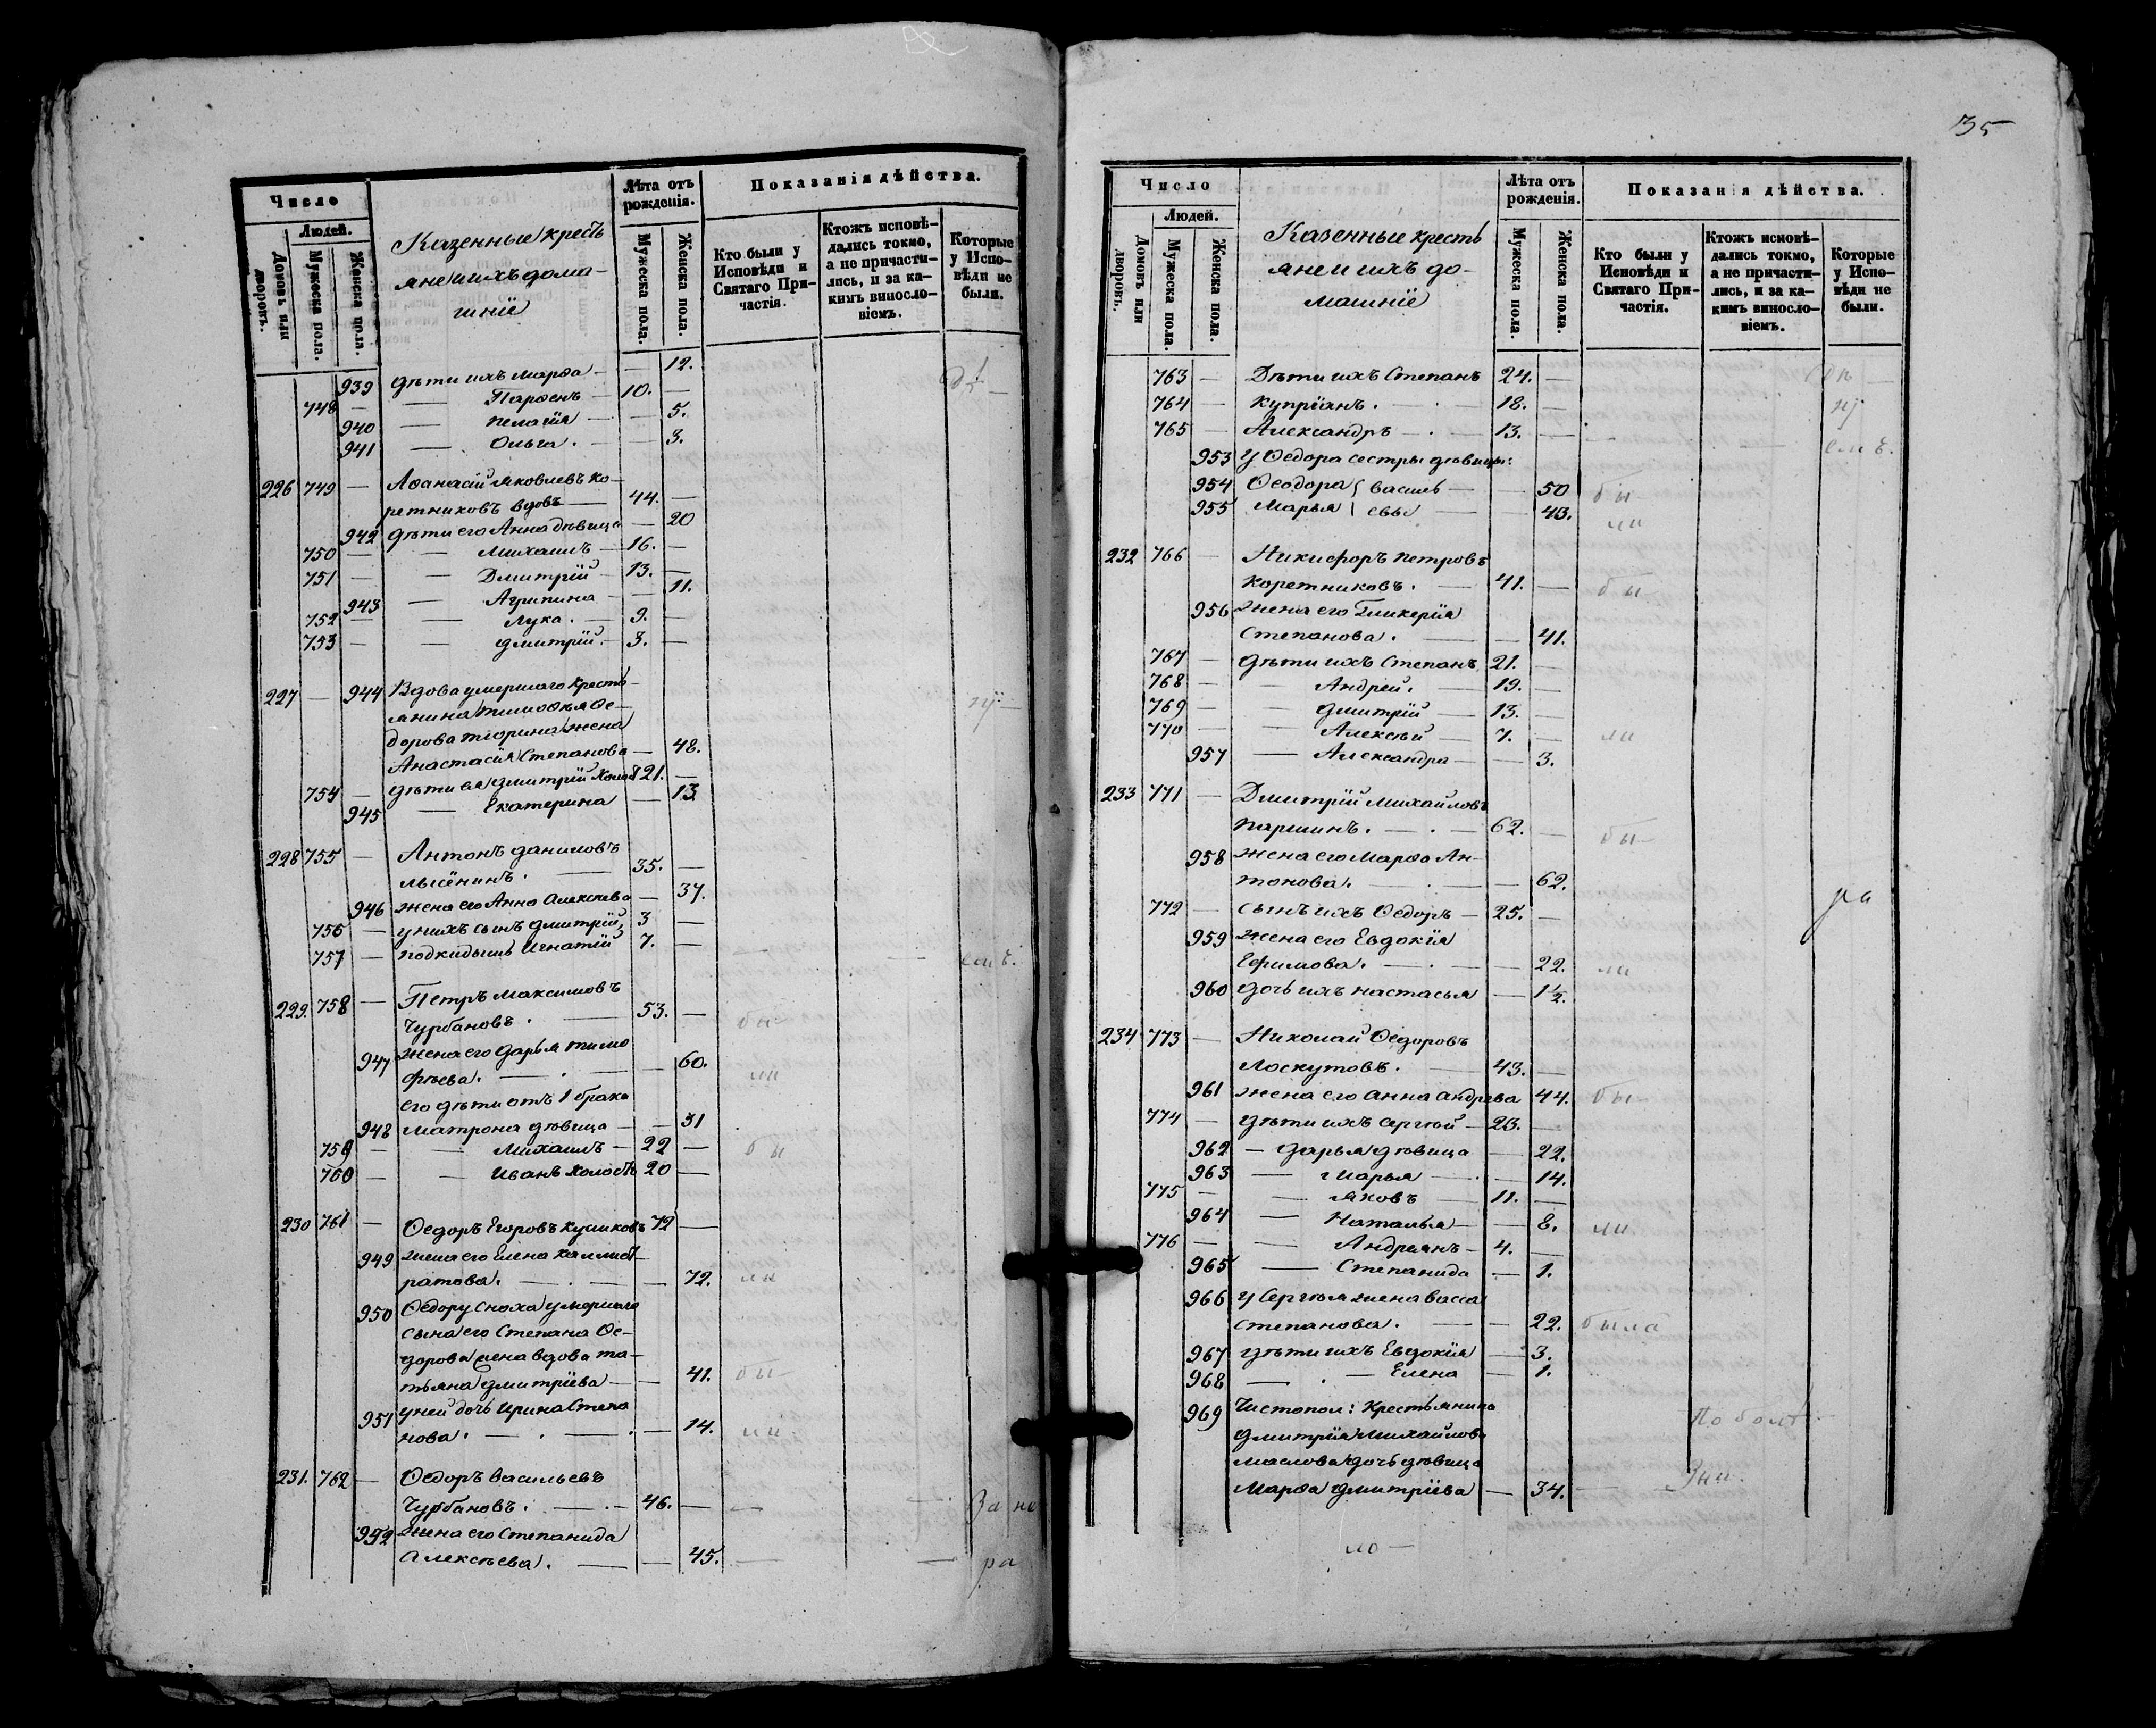 Число
Людей.
Домовъ или дворовъ.
Мужеска пола.
Женска пола.
Казенные кресть
яне и ихъ дома-
шніе
Лѣта отъ рожденія.
Мужеска пола.
Женска пола.
Показанія дѣйства.
Кто были у Исповѣди и Святаго Причастія.
Ктожъ исповѣдались токмо, а не причастились, и за какимъ винословіемъ.
Которые у Исповѣди не были.
939 дѣти ихъ Марѳа — — 12.
748 — — Парѳенъ — 10. —
940 — Пелагія — — 5.
941 — Ольга. — — 3.
226 749 — Аѳанасій Яковлевъ Ко-
ретниковъ вдовъ — 44. —
942 дѣти его Анна дѣвица — 20
750 — — Михаилъ — 16. —
751 — — Дмитрій — 13. —
943 — Агрипина — — 11.
752 — — Лука. — 9. —
753 — — Дмитрій. — 3. —
227 — 944 Вдова умершаго кресть-
янина Тимоѳья Ѳе-
дорова Тюрина жена
Анастасія Степанова — 48.
754 — дѣти ея Дмитрій холос 21. —
945 — Екатерина — 13
228 755 — Антонъ Даниловъ
35. —
946 жена его Анна Алексѣева — 37.
756 — у нихъ сынъ Дмитрій, 3 —
757 — подкидышъ Игнатій 7. — емъ.
229. 758 — Петръ Максимовъ
Чурбановъ. — 53. — бы-
947 жена его Дарья Тимо
фѣева. — . — — 60. ли
его дѣти отъ 1 брака
948 Матрона дѣвица — — 31
759 — — Михаилъ — 22 — бы
760 — — Иванъ холостъ 20 —
230 761 — Ѳедоръ Егоровъ Куликовъ 72 —
949 жена его Елена Каллист-
ратова. — . — — 72. ли
950 Ѳедору сноха умершаго
сына его Степана Ѳе-
дорова жена вдова Та-
тьяна Дмитріева — — 41. бы-
951 у ней дочь Ирина Степа
нова. — . — . — 14. ли
231. 762 — Ѳедоръ Васильевъ
Чурбановъ. — . — 46. — — За не
952 жена его Степанида
Алексѣева. — — 45. — — ра
35
Число
Людей.
Домовъ или дворовъ.
Мужеска пола.
Женска пола.
Казенные кресть
яне и ихъ до-
машніе
Лѣта отъ рожденія.
Мужеска пола.
Женска пола.
Показанія дѣйства.
Кто были у Исповѣди и Святаго Причастія.
Ктожъ исповѣдались токмо, а не причастились, и за какимъ винословіемъ.
Которые у Исповѣди не были.
763 — Дѣти ихъ Степанъ 24. —
764 — Купріанъ. — . — 18. —
765 — Александръ — . — 13. — емъ.
953 у Ѳедора сестры дѣвицы:
954 Ѳеодора { василь — — 50 бы
955 Марья { евы — — 43. ли
232 766 — Никифоръ Петровъ
Коретниковъ. — 41. — бы
956 жена его Гликерія
Степанова. — — 41.
767 — дѣти ихъ Степанъ, 21. —
768 — — Андрей. — 19. —
769 — — Дмитрій — 13. —
770 — — Алексѣй — 7. — ли
957 — Александра — — 3.
233 771 — Дмитрій Михайловъ
Паршинъ. — . — 62. — бы-
958 жена его Марѳа Ан-
тонова. — . — — 62.
772 — сынъ ихъ Ѳедоръ — 25. — ра
959 жена его Евдокія
Ефимова. — . — — 22. ли
960 дочь ихъ Настасья — 1½.
234 773 — Николай Ѳедоровъ
Лоскутовъ. — 43. —
961 жена его Анна Андрѣва 44. бы-
774 — дѣти ихъ Сергѣй — 23. —
962 — Дарья дѣвица — 22.
963 — Марья — . — 14.
775 — — Яковъ — 11. —
964 — Наталья — — 8. ли
776 — — Андреянъ — 4. —
965 — Степанида — 1.
966 у Сергѣя жена Васса
Степанова. — — 22. была
967 дѣти ихъ Евдокія — 3.
968 — . — Елена — 1.
969 Чистопол: крестьянина
Дмитрія Михайлова
Маслова дочь дѣвица
Марѳа Дмитріева — 34. — —
ло —